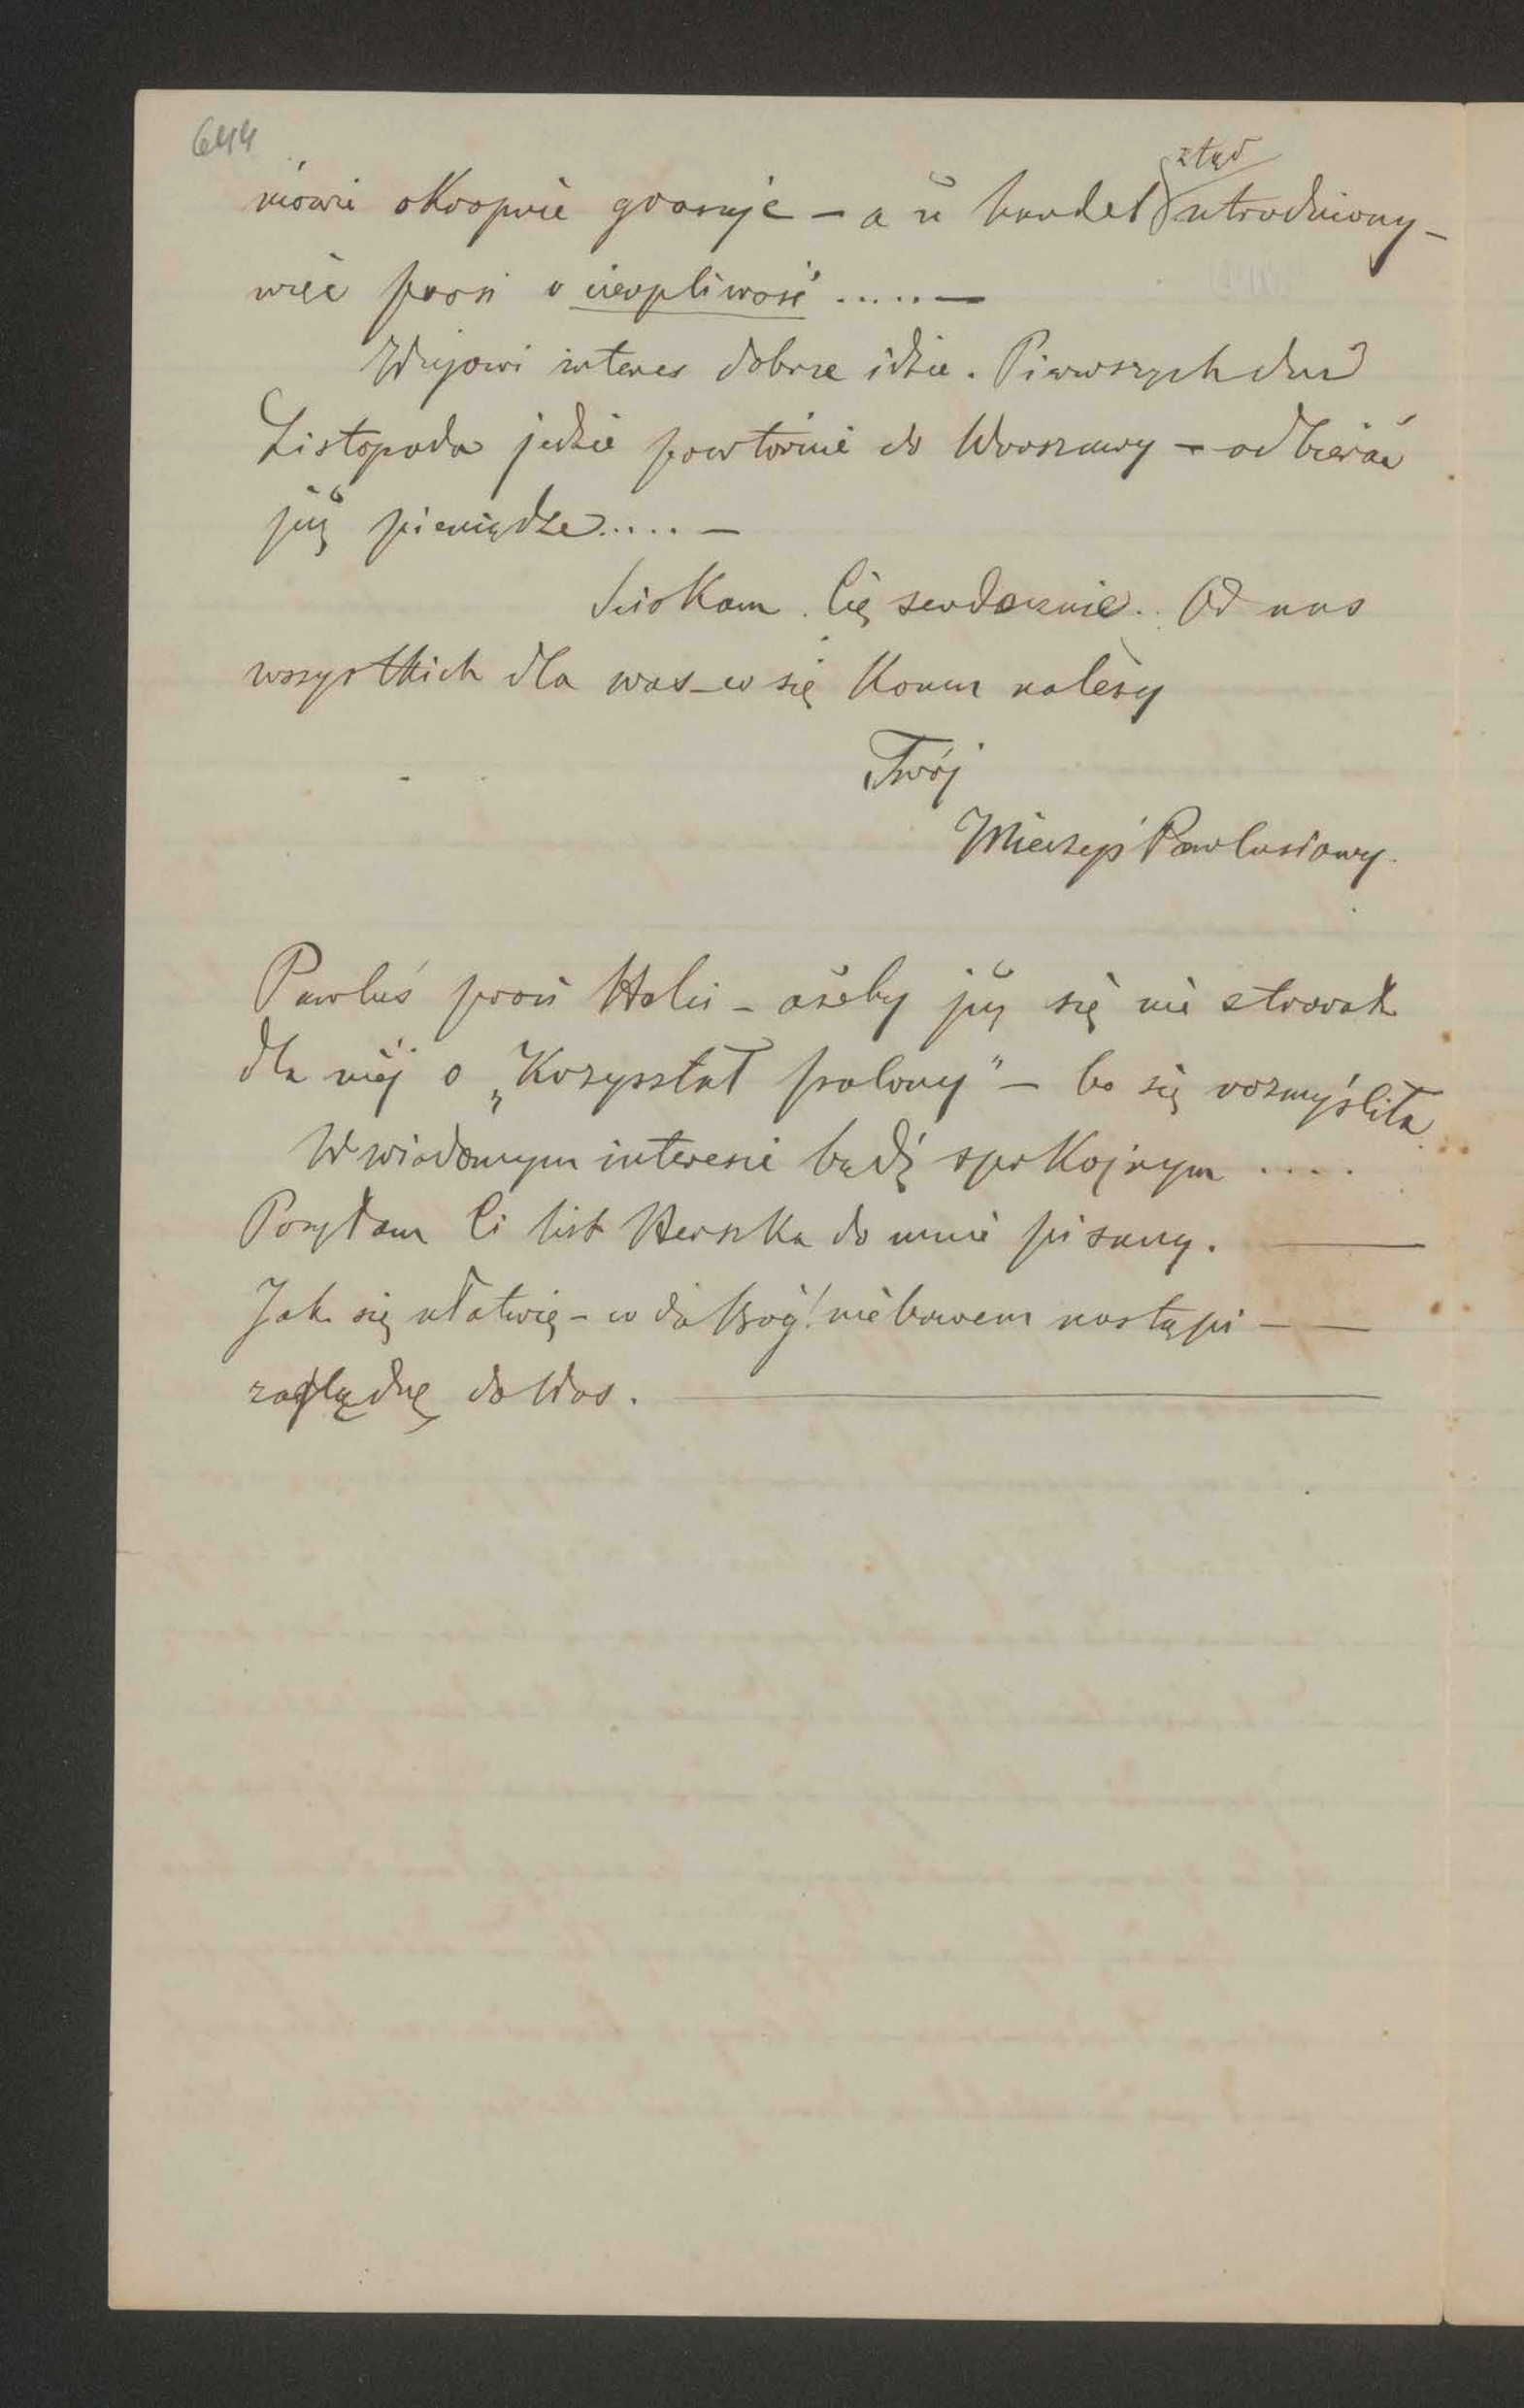 644
mówi okropnie grasuje – a ż handel ztąd utrudniony –
więc prosi o cierpliwość ..... —
Wujowi interes dobrze idzie. Pierwszych dni
Listopada jedzie powtórnie do Warszawy – odbierać
już pieniądze..... –
Sciskam Cię serdecznie. Od nas
wszystkich dla was – co się komu należy
Twój
Miecżyś Pawlusiowy.
Pawluś prosi Holci – ażeby już się nie starał
dla niéj o „Kryształ palony" – bo się rozmyśliła
W wiadomym interesie bądź spokojnym ....
Posyłam Ci list Herszka do mnie pisany. —
Jak się ułatwię – co da Bóg! niebawem nastąpi – —
zaglądnę do Was. —